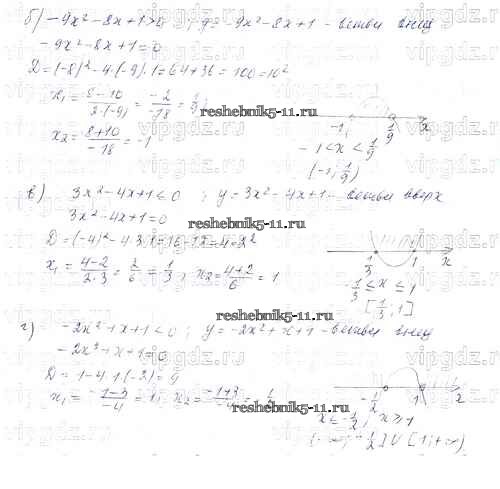 б) -9x² - 8x + 1 > 0 ; y = -9x² - 8x + 1 - ветви вниз
-9x² - 8x + 1 = 0
D = (-8)² - 4·(-9)·1 = 64 + 36 = 100 = 10²
x₁ = (8-10)/(2·(-9)) = -2/-18 = 1/9 ;
x₂ = (8+10)/-18 = -1
-1 1/9 x
-1 < x < 1/9
(-1; 1/9)
в) 3x² - 4x + 1 ≤ 0 ; y = 3x² - 4x + 1 - ветви вверх
3x² - 4x + 1 = 0
D = (-4)² - 4·3·1 = 16 - 12 = 4 = 2²
x₁ = (4-2)/(2·3) = 2/6 = 1/3 ; x₂ = (4+2)/6 = 1
1/3 1 x
1/3 ≤ x ≤ 1
[1/3; 1]
г) -2x² + x + 1 ≤ 0 ; y = -2x² + x + 1 - ветви вниз
-2x² + x + 1 = 0
D = 1 - 4·1·(-2) = 9
x₁ = (-1-3)/-4 = 1 ; x₂ = (-1+3)/-4 = -1/2
-1/2 1 x
x ≤ -1/2 ; x ≥ 1
(-∞; -1/2] ∪ [1; +∞)
reshebnik5-11.ru
reshebnik5-11.ru
reshebnik5-11.ru
vipgdz.ru